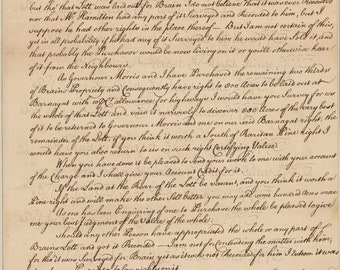 but tho' that Lott was laid out for Brain I do not believe that it was ever Recorded
nor that Mr. Hamilton had any part of it Surveyed and Recorded to him, but I
suppose he had other rights in the place thereof. But I am not certain of this,
yet in all probability if he had any of it Surveyed to him he would have Sold it, and
that probably the Purchaser would be now living on it or you'll otherwise hear
of it from the Neighbours.
As Governour Morris and I have Purchased the remaining two thirds
of Brains Propriety and Consequently have rights to 800 Acres to be laid out at
Barnagat with 10 allowance for highways I would have you Survey for us
the whole of that Lott and view it narrowly to discover 800 Acres of the very best
of it to be returned to Governour Morris and me on our said Barnagat right, the
remainder of the Lott, if you think it worth a South of Raritan Pine Right I
would have you also return to us on such right Certifying Value
When you have done it be pleased to Send your work to me with your account
of the Charge and I shall give your Account Credit for it.
If the Land at the Rear of the Lott be vacant, and you think it worth a
Pine right and will make the other sell better you may add some hundred acres more
As one has been Enquiring of me to Purchase the whole be pleased to give
me your own Judgment of the Value of the whole.
Should any other Person have appropriated the whole or any part of
Brains Lott and got it Recorded I am not for Confuting the matter with him,
for tho' it was Surveyed for Brain yet as it was not Recorded for him I token it was